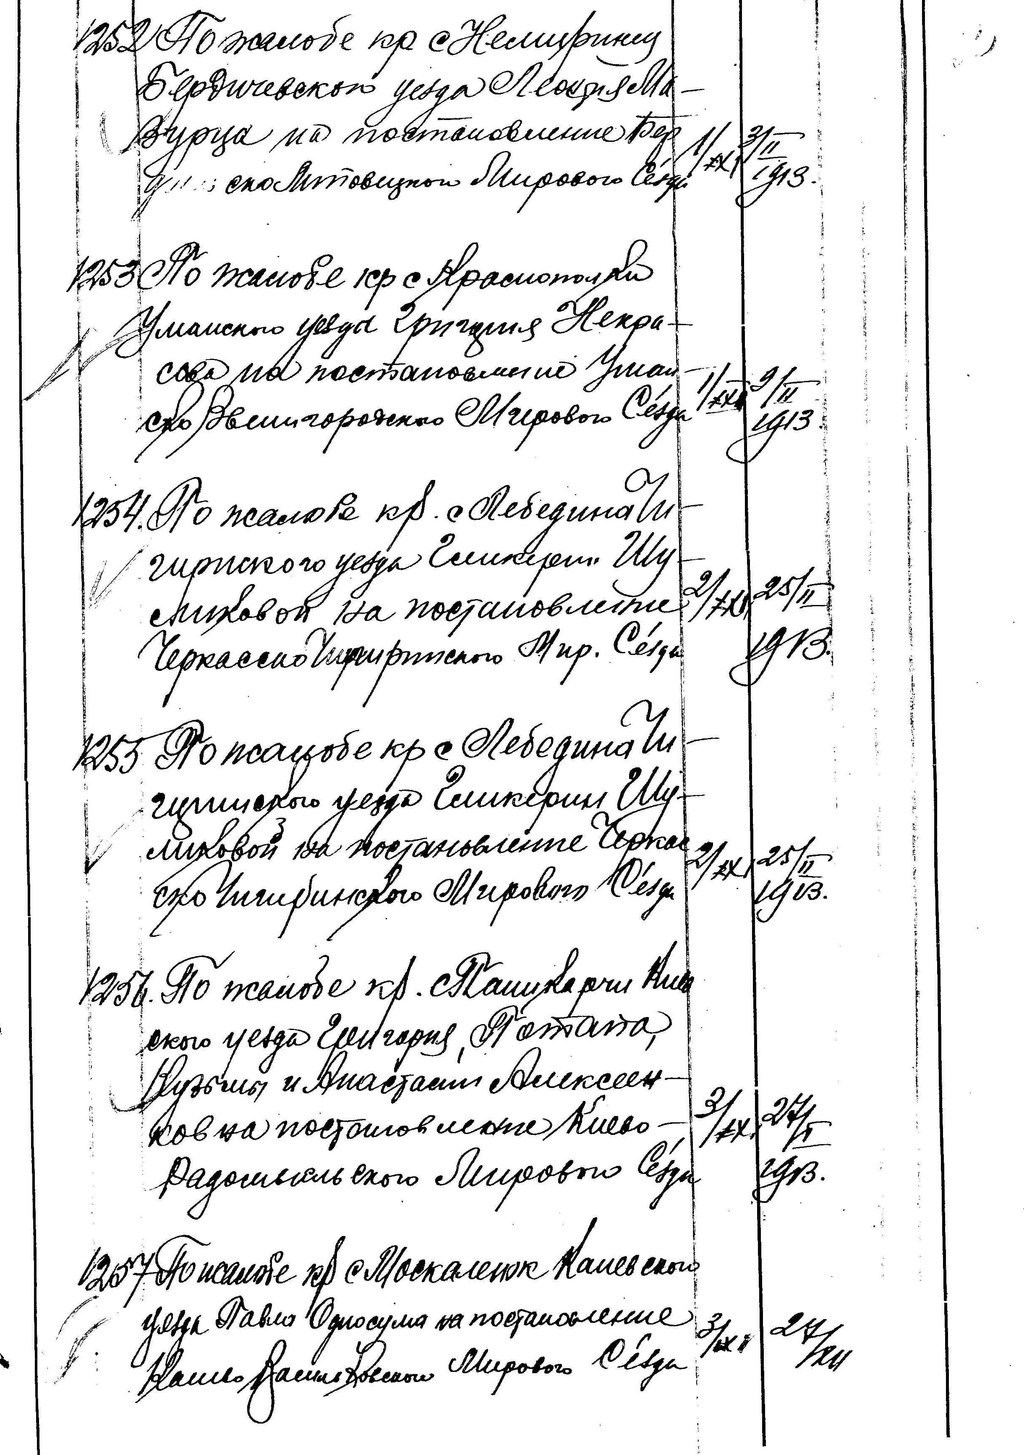 1252 По жалобе кр с Немиринец
Бердичевскоп уезда Леонтия Ма-
зурца на постановление Бер
ско Липовецкоп Мирового Сезда 1/XXI 3/II 1913.
1253 По жалобе кр с Краснополки
Уманского уезда Григория Некра-
сова на постановление Уман-
ско Звенигородского Мирового Сезда 1/XXII 9/II 1913.
1254. По жалобе кр. с Лебедина Чи-
гиринского уезда Гликерии Шу-
ликовой на постановление 2/XXI 25/II
Черкасско Чигиринского Мир. Сезда 1913.
1255 По жалобе кр с Лебедина Чи-
гиринского уезда Гликерии Шу-
ликовой на постановление Черкас
ско Чигиринского Мирового Сезда 2/XXI 25/II 1913.
1256. По жалобе кр. с Киев
ского уезда Григория, Потапа,
Кузьмы и Анастасии Алексеен-
ков на постановление Киево- 3/XX 27/I
Радомысльского Мирового Сезда 1913.
1257 По жалобе кр с Москаленок Каневского
уезда Павла Односума на постановление
Канево Васильковского Мирового Сезда 3/XXII 27/XII